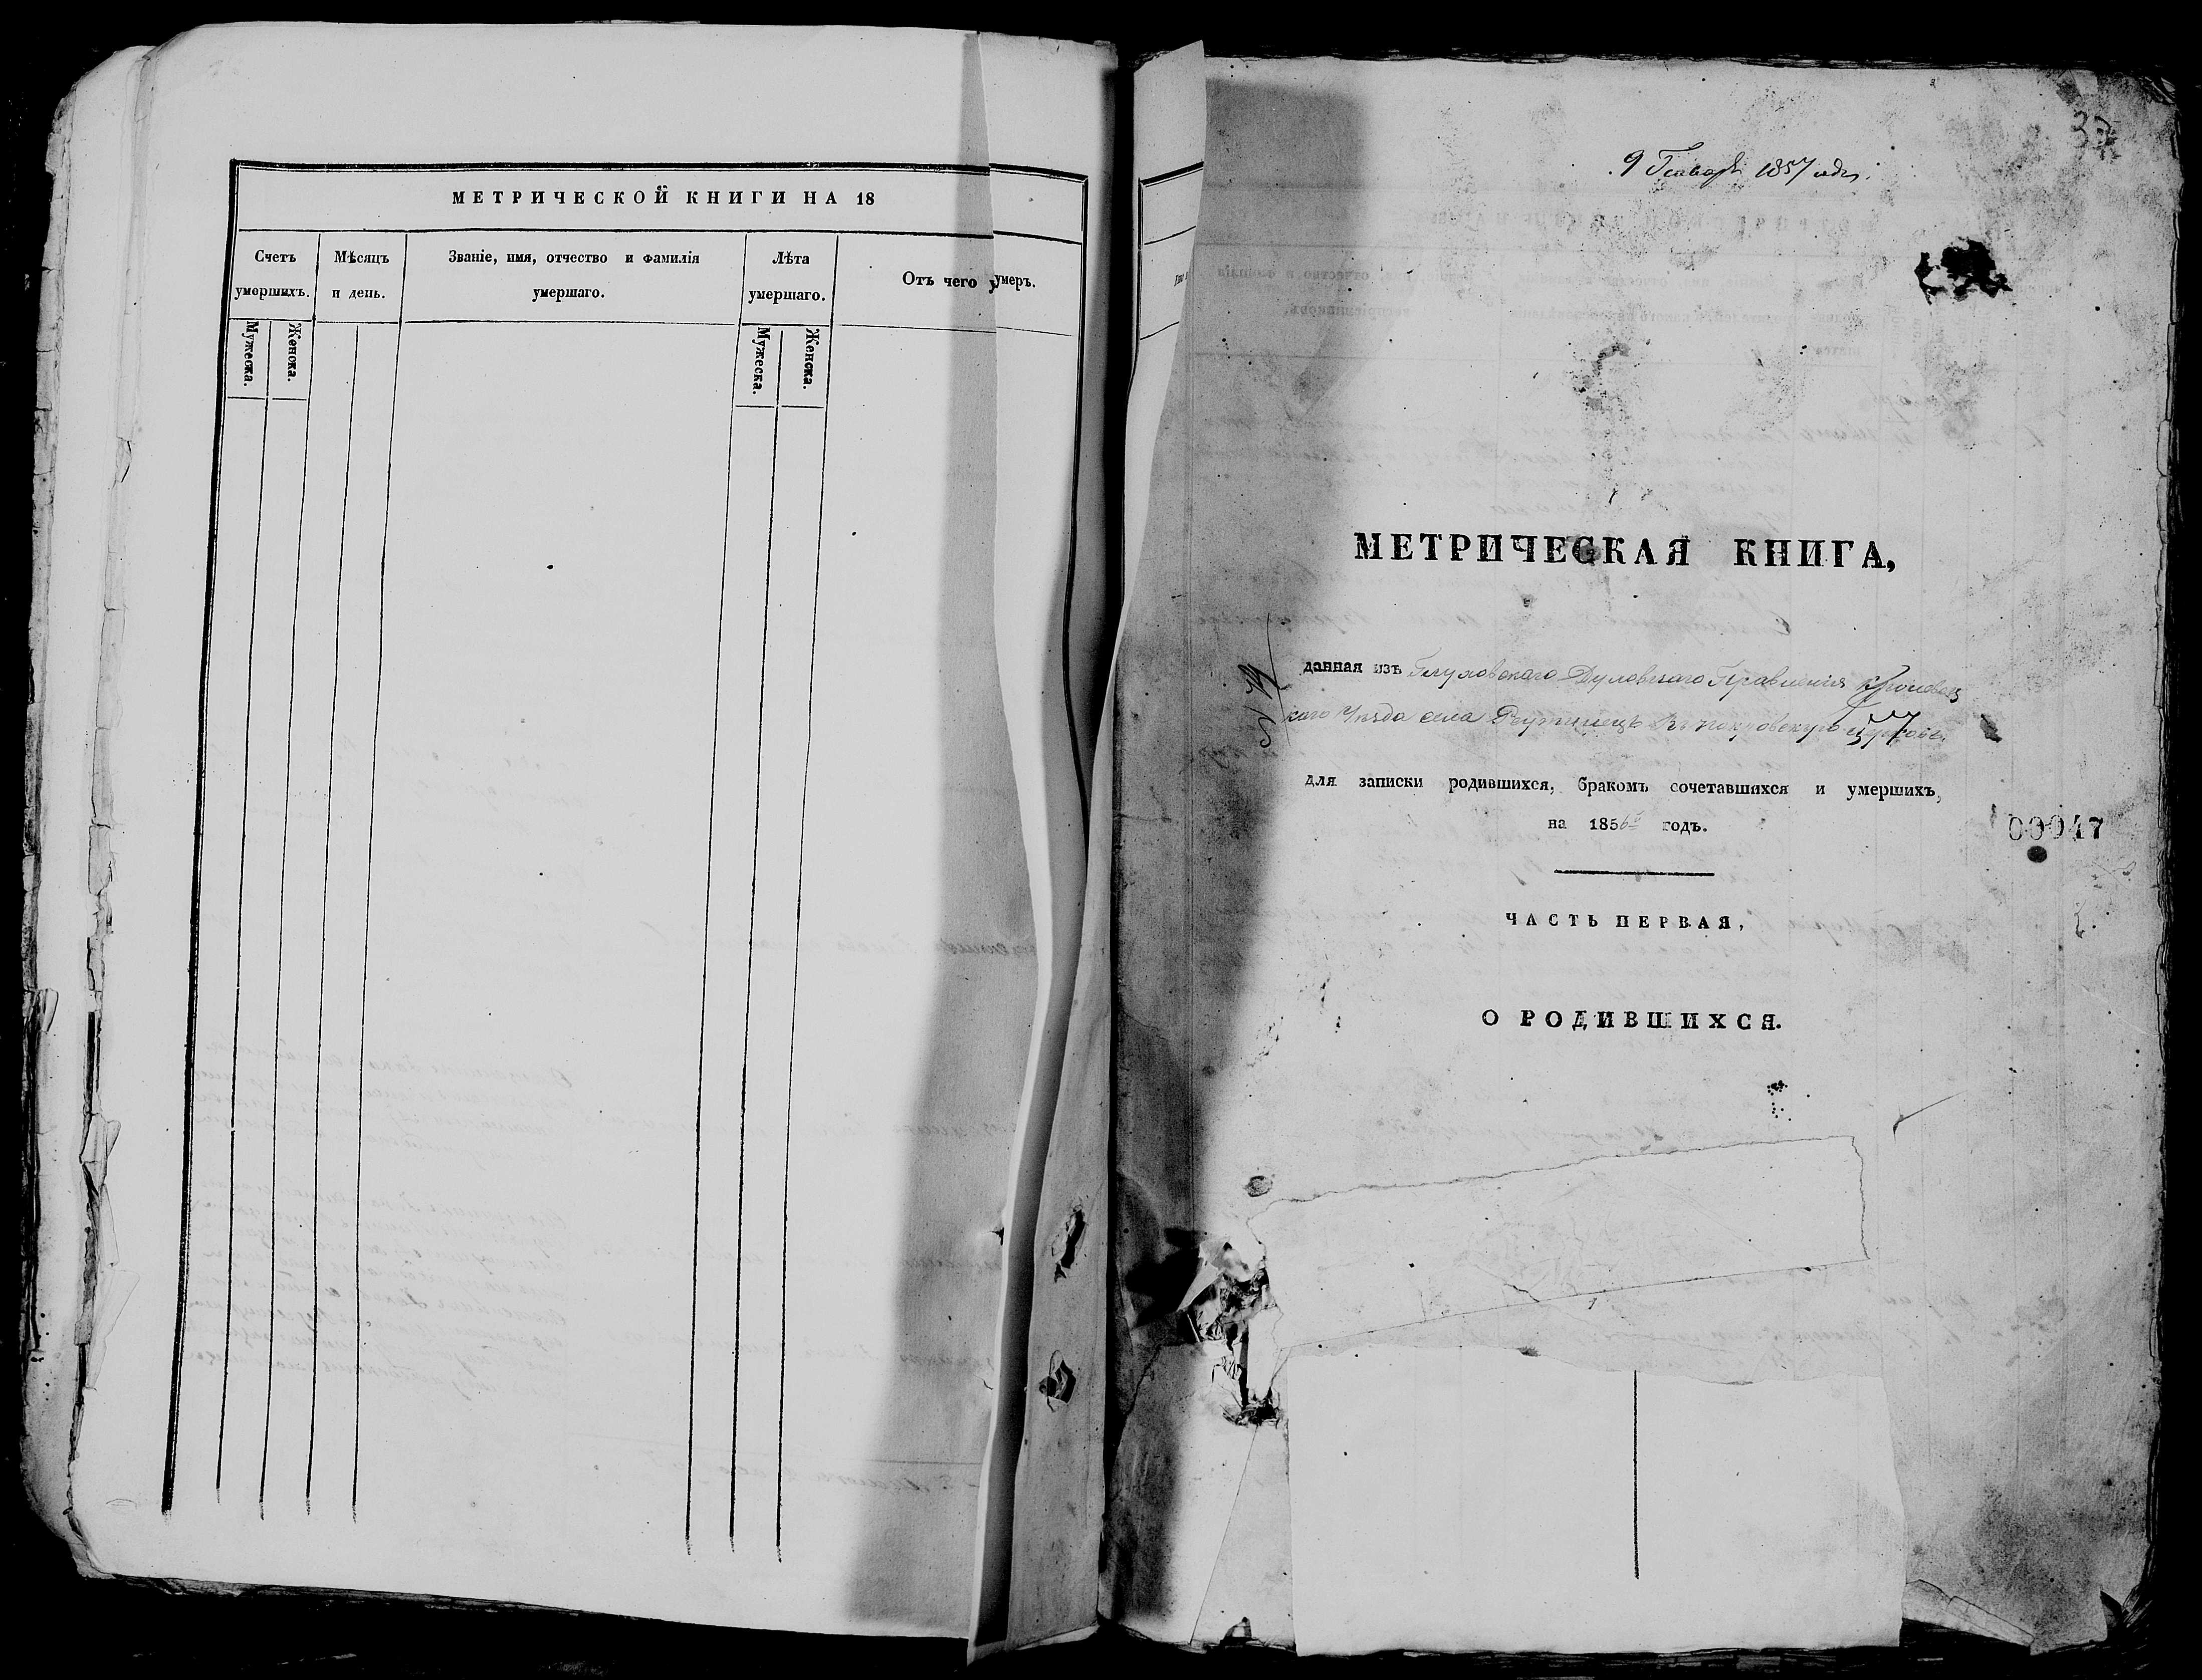 МЕТРИЧЕСКОЙ КНИГИ НА 18
Счетъ умершихъ.
Мѣсяцъ и день.
Званіе, имя, отчество и фамилія
умершаго.
Лѣта умершаго.
Отъ чего умеръ.
Мужеска.
Женска.
Мужеска.
Женска.
9 Генваря 1857 года.
МЕТРИЧЕСКАЯ КНИГА,
данная изъ Глуховскаго Духовнаго Правленія Кролевец
каго Уѣзда села Реутинецъ въ Покровскую церковь
для записки родившихся, бракомъ сочетавшихся и умершихъ,
на 1856й годъ.
00047
ЧАСТЬ ПЕРВАЯ,
О РОДИВШИХСЯ.